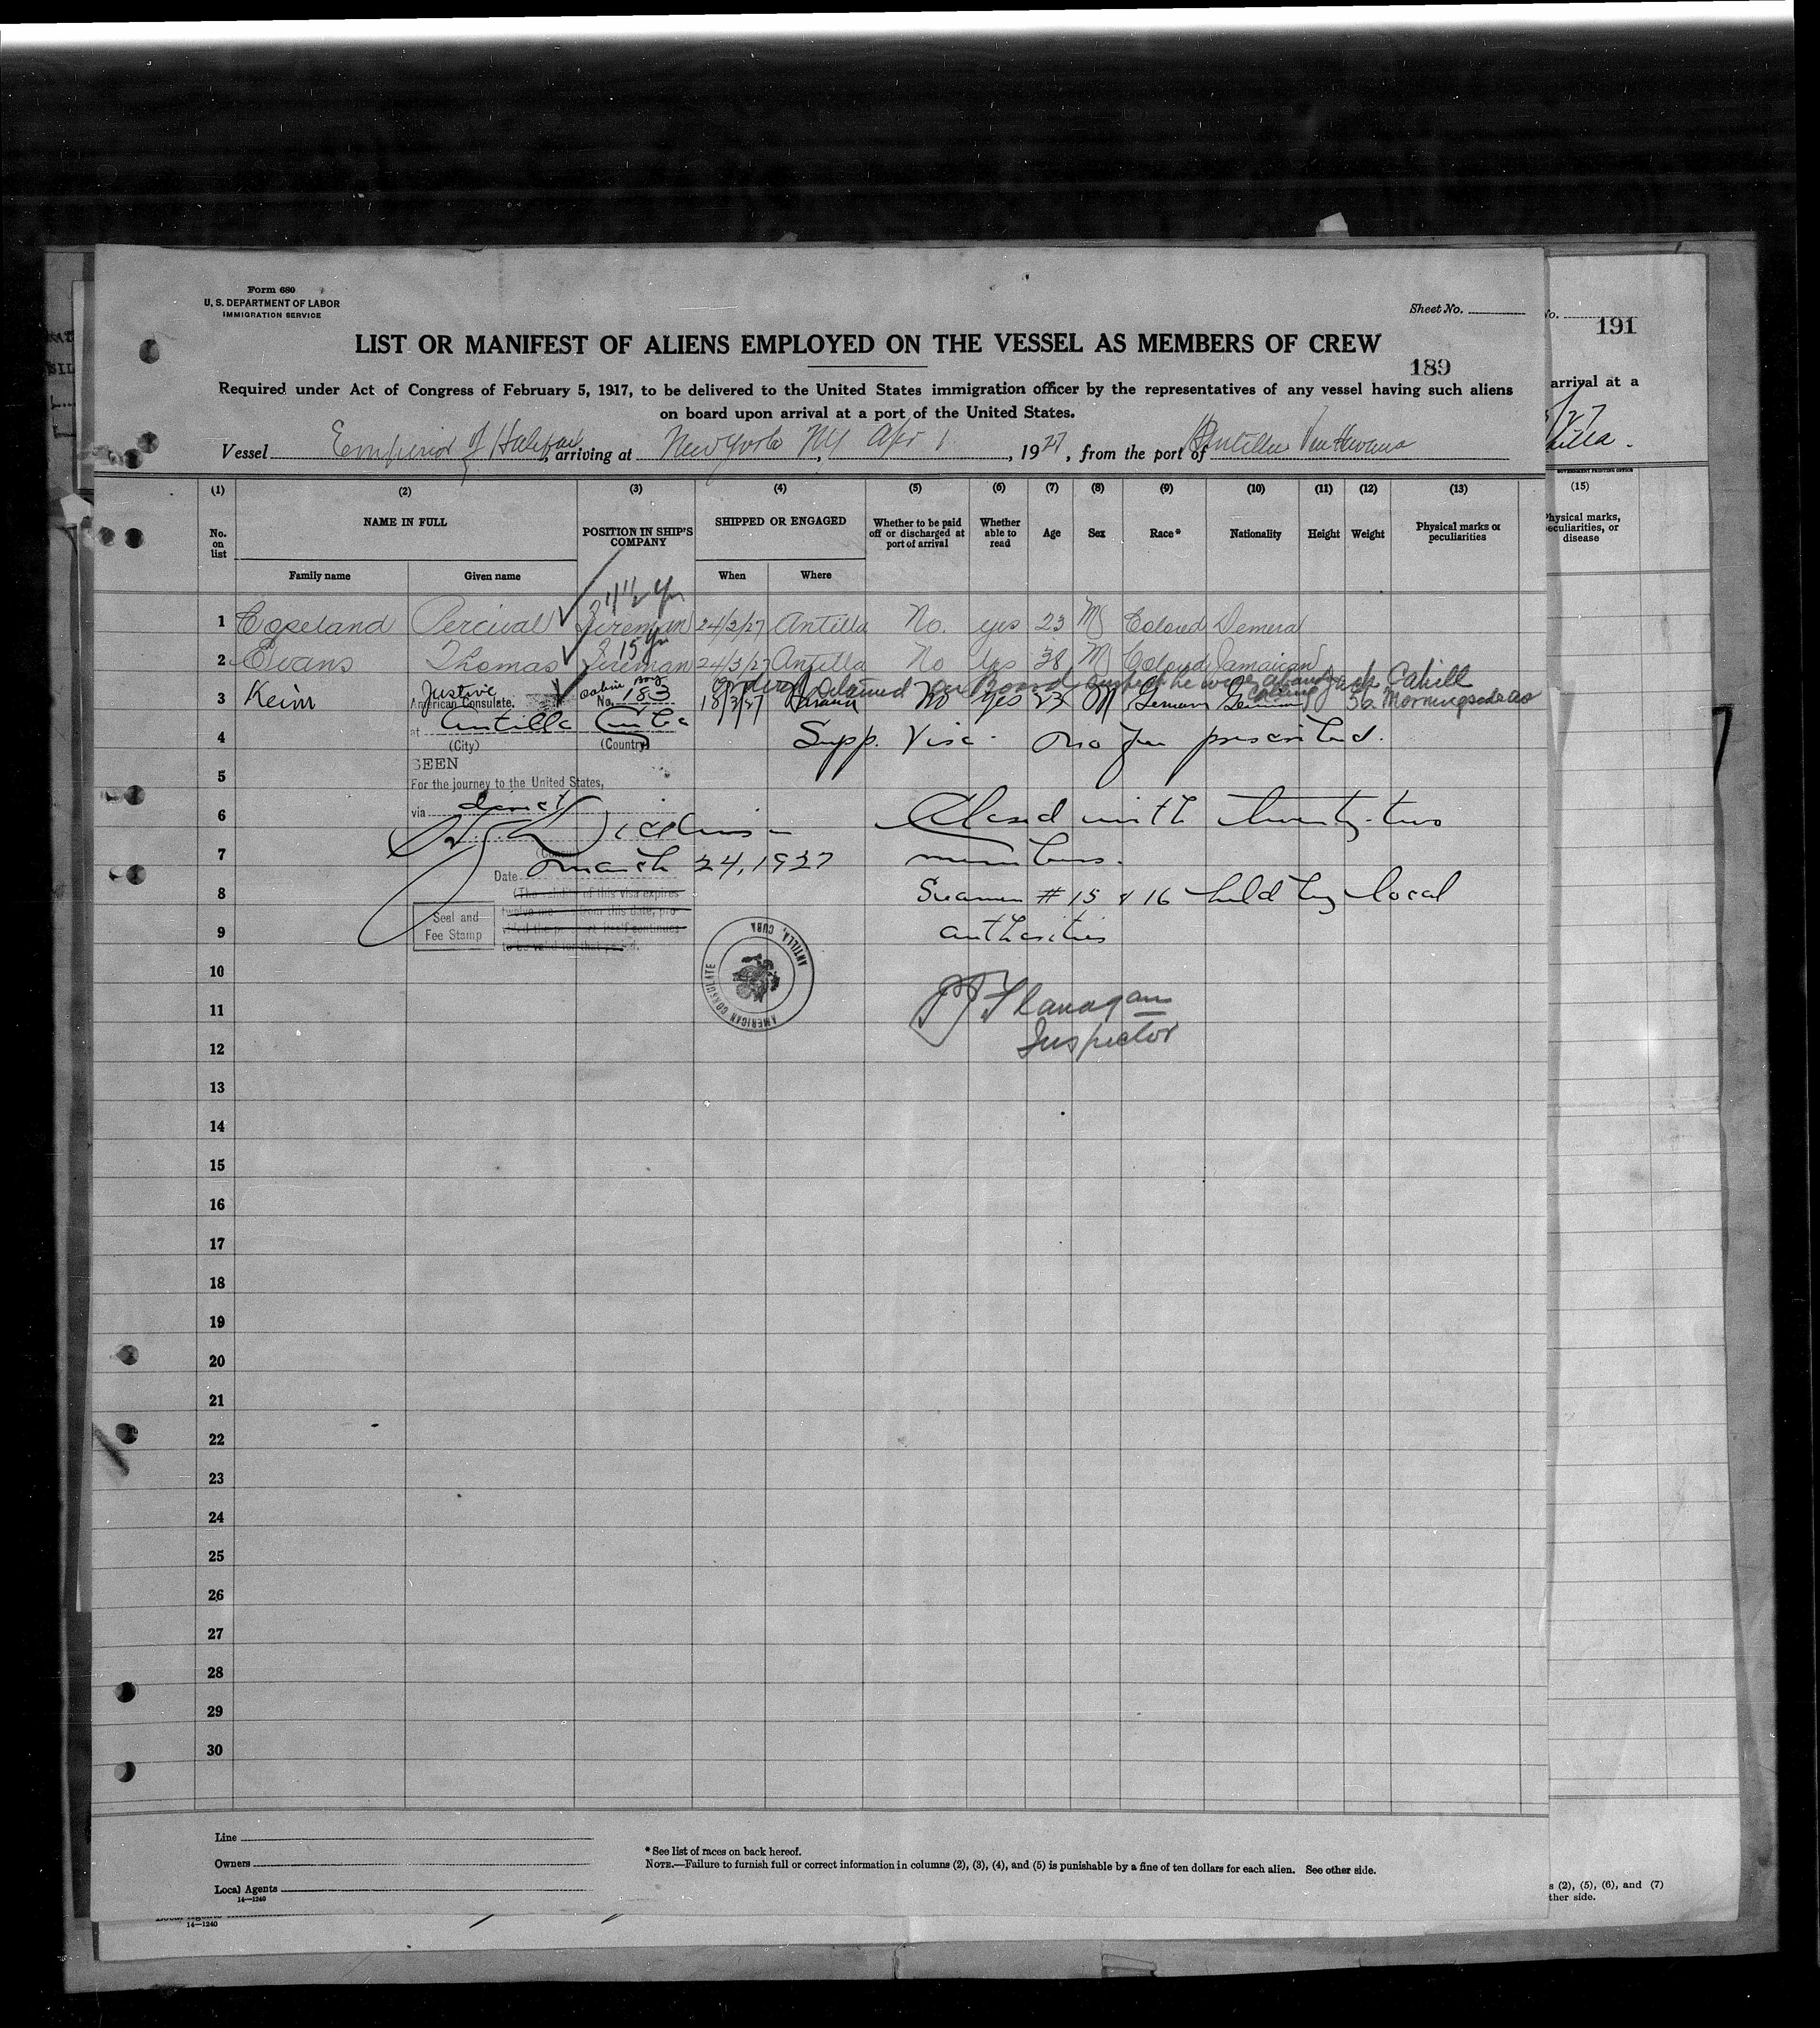 Form 680
U. S. DEPARTMENT OF LABOR
IMMIGRATION SERVICE
Sheet No.
LIST OR MANIFEST OF ALIENS EMPLOYED ON THE VESSEL AS MEMBERS OF CREW
189
Required under Act of Congress of February 5, 1917, to be delivered to the United States immigration officer by the representatives of any vessel having such aliens
on board upon arrival at a port of the United States.
Vessel Emperior of Halifax, arriving at New York NY, Apr 1, 1927, from the port of Antilla
(1) (2) (3) (4) (5) (6) (7) (8) (9) (10) (11) (12) (13)
No. on list
NAME IN FULL
Family name
Given name
POSITION IN SHIP'S COMPANY
SHIPPED OR ENGAGED
When
Where
Whether to be paid off or discharged at port of arrival
Whether able to read
Age
Sex
Race*
Nationality
Height
Weight
Physical marks or peculiarities
1 1/2 yr
1 Copeland Percival Fireman 24/3/27 Antilla No. yes 23 M Colored Demera
15 yr
2 Evans Thomas Fireman 24/3/27 Antilla No Yes 38 M Colored Jamaican
Cahill
cabin boy
3 Keim Justive 18/3/27 No Yes 23 M German German 56 Morningside av
American Consulate. No. 183
at Antilla Cuba
(City) (Country)
4 Supp. Visa. No fee prescribed.
SEEN
5
For the journey to the United States,
via direct
6 Closed with twenty-two
7 members.
Date March 24, 1927
8 Seamen # 15 & 16 held by local
(The validity of this visa expires
twelve months from this date, pro-
vided the passport itself continues
to be valid for that period.
Seal and
Fee Stamp
9 authorities
AMERICAN CONSULATE
ANTILLA, CUBA
10
11 Flanagan
12 Inspector
13
14
15
16
17
18
19
20
21
22
23
24
25
26
27
28
29
30
Line
Owners
Local Agents
14—1240
* See list of races on back hereof.
NOTE.—Failure to furnish full or correct information in columns (2), (3), (4), and (5) is punishable by a fine of ten dollars for each alien. See other side.
14—1240
191
arrival at a
(15)
Physical marks,
peculiarities, or
disease
s (2), (5), (6), and (7)
ther side.